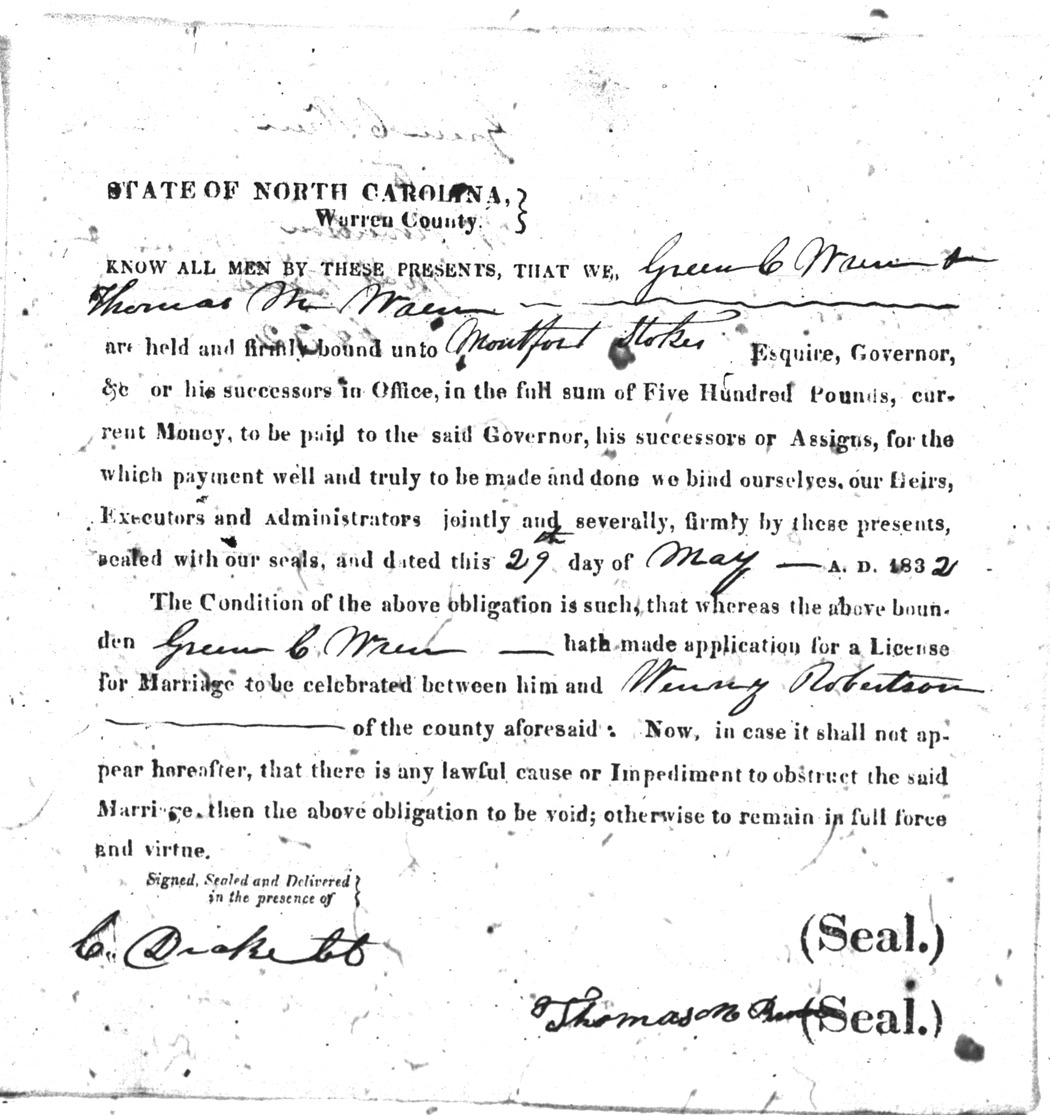 STATE OF NORTH CAROLINA,
Warren County.
KNOW ALL MEN BY THESE PRESENTS, THAT WE, Green C Wren &
Thomas M Wren
are held and firmly bound unto Montford Stokes Esquire, Governor,
&c or his successors in Office, in the full sum of Five Hundred Pounds, cur-
rent Money, to be paid to the said Governor, his successors or Assigns, for the
which payment well and truly to be made and done we bind ourselves, our Heirs,
Executors and Administrators jointly and severally, firmly by these presents,
sealed with our seals, and dated this 29th day of May — A. D. 1832
The Condition of the above obligation is such, that whereas the above boun-
den Green C Wren — hath made application for a License
for Marriage to be celebrated between him and Robertson
of the county aforesaid: Now, in case it shall not ap-
pear hereafter, that there is any lawful cause or Impediment to obstruct the said
Marriage, then the above obligation to be void; otherwise to remain in full force
and virtue.
Signed, Sealed and Delivered
in the presence of
C. Drake
(Seal.)
Thomas M (Seal.)